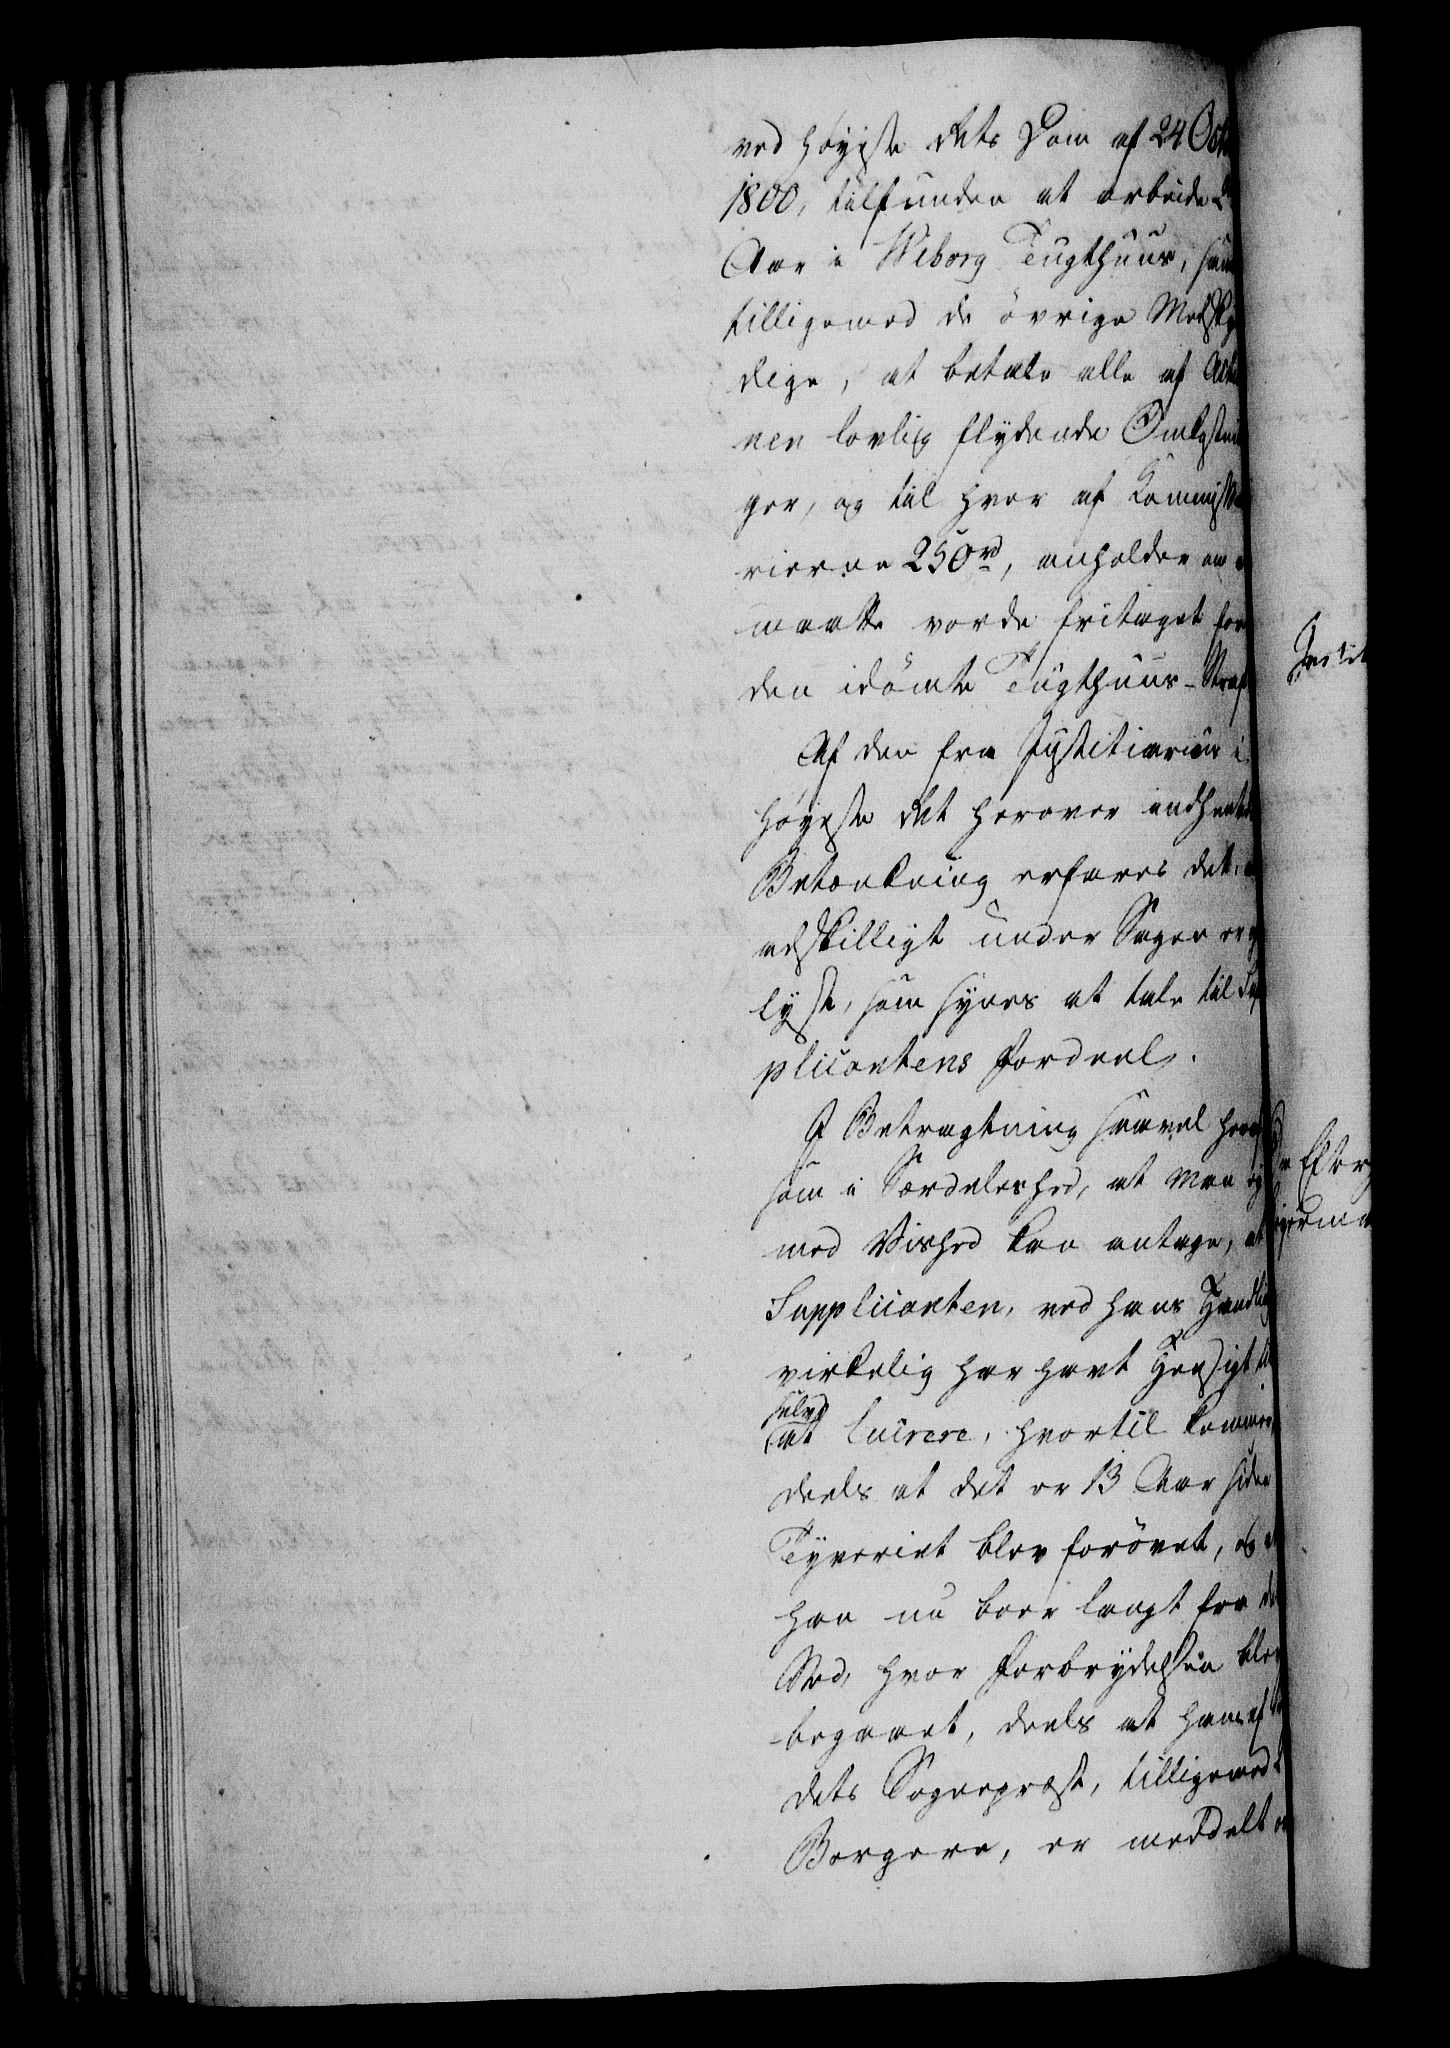 ved Høyeste Rets Dom af 24 Octo
1800, tilfunden at arbeide 2
Aar i Wiborg Tugthuus, sam
tilligemed de øvrige Medsky
dige, at betale alle af Actio
nen lovlig flydende Omkostnin
ger, og til hver af Kommissa
rierne 250 rd, anholder om
maatte vorde fritaget for
den idømte Tugthuus-Straf
Af den fra Justitiarius i
Høyeste Ret herover indhentede
Betænkning erfares det,
adskilligt under Sagen er op
lyst, som synes at tale til Sup
plicantens Fordeel.
I Betragtning saavel heraf
som i Særdeleshed, at man ey
med Vished kan antage, at
Supplicanten, ved hans Handling
virkelig har havt Hensigt til
selv
at lucrere, hvortil kommer,
deels at det er 13 Aar siden
Tyveriet blev forøvet, og at
han nu boer langt fra det
Sted, hvor Forbrydelsen blev
begaaet, deels at ham af
dets Sognepræst, tilligemed
Borgere, er meddelt